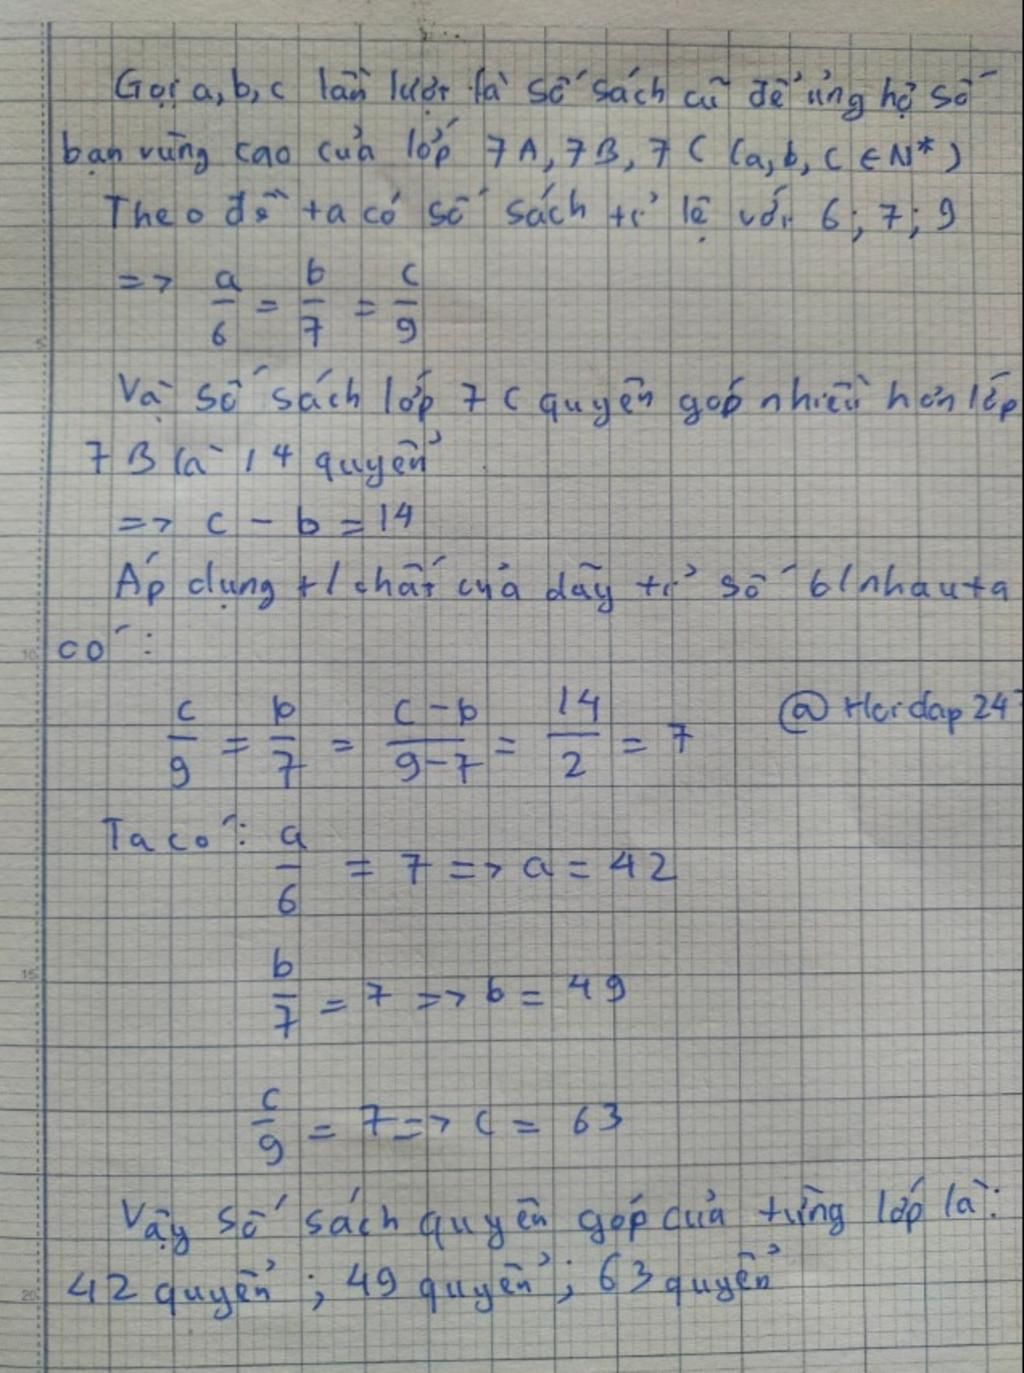 Gọi a, b, c lần lượt là số sách cũ để ủng hộ số
bạn vùng cao của lớp 7A, 7B, 7C (a, b, c ∈ N*)
Theo đề ta có số sách tỉ lệ với 6; 7; 9
=> a/6 = b/7 = c/9
Và số sách lớp 7C quyên góp nhiều hơn lớp
7B là 14 quyển
=> c - b = 14
Áp dụng t/chất của dãy tỉ số b/nhau ta
có:
c/9 = b/7 = (c-b)/(9-7) = 14/2 = 7
@Hoidap247
Ta có: a/6 = 7 => a = 42
b/7 = 7 => b = 49
c/9 = 7 => c = 63
Vậy số sách quyên góp của từng lớp là:
42 quyển; 49 quyển; 63 quyển